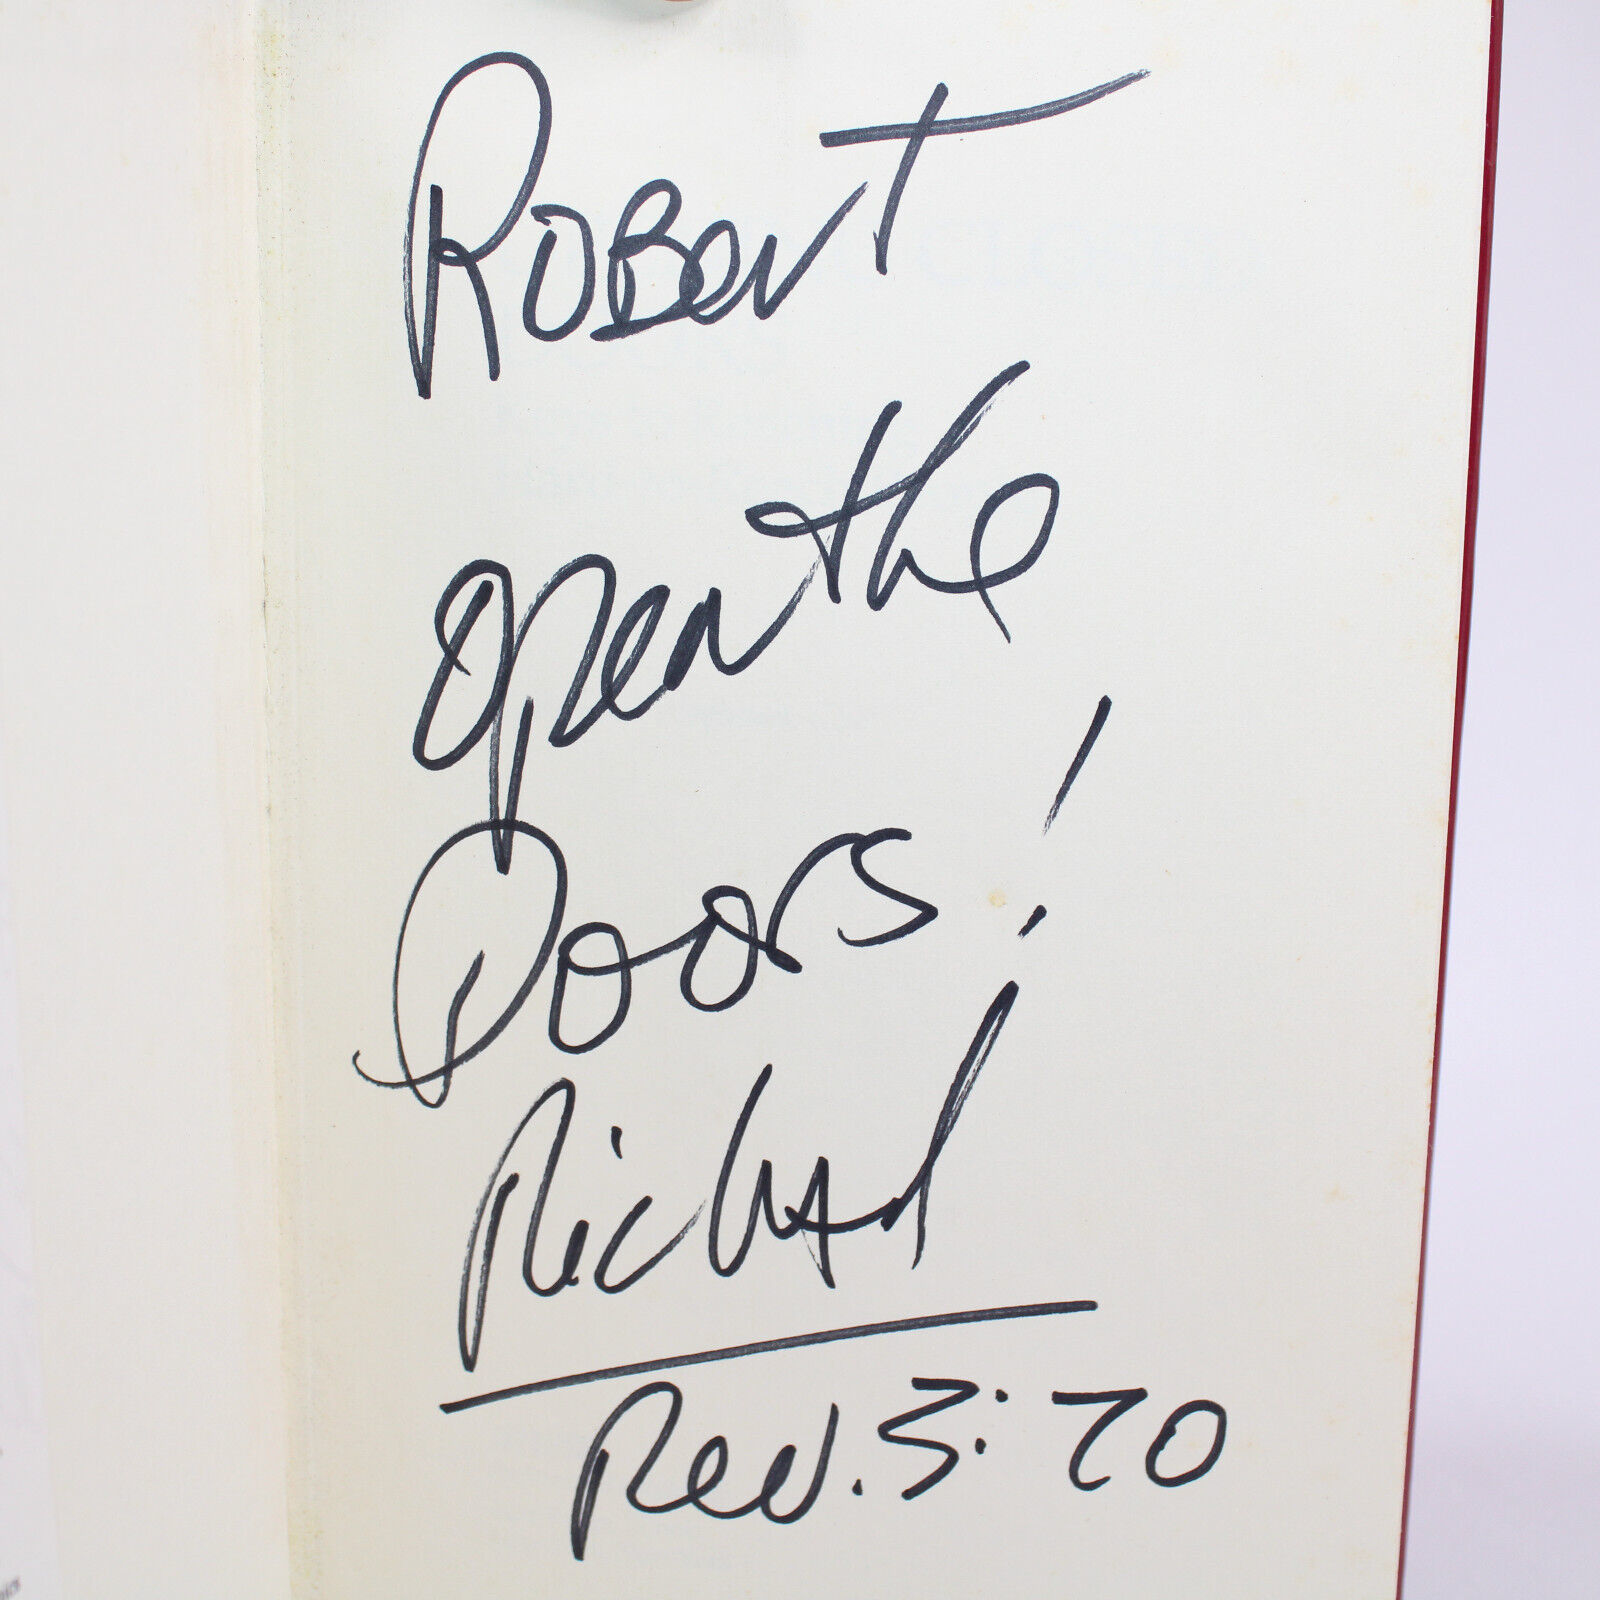 Robert
open the
Doors!
Richard
Rev. 3:20